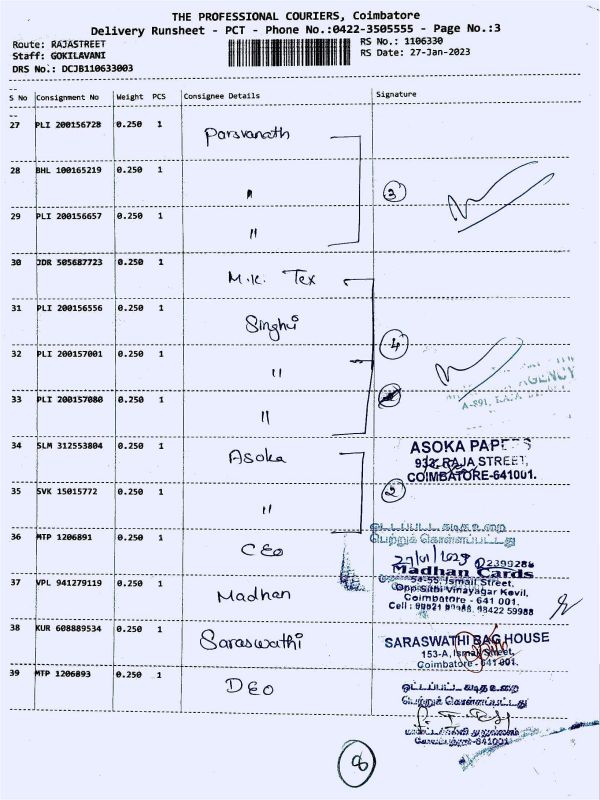 THE PROFESSIONAL COURIERS, Coimbatore
Delivery Runsheet - PCT - Phone No.:0422-3505555 - Page No.:3
Route: RAJASTREET
RS No.: 1106330
Staff: GOKILAVANI
RS Date: 27-Jan-2023
DRS No.: DCJB110633003
S No Consignment No Weight PCS Consignee Details Signature
27 PLI 200156728 0.250 1 Parsvanath
28 BHL 100165219 0.250 1 "
3
29 PLI 200156657 0.250 1 "
30 JDR 505687723 0.250 1 M.K. Tex
31 PLI 200156556 0.250 1 Singhvi
4
32 PLI 200157001 0.250 1 "
AGENCY
33 PLI 200157080 0.250 1 "
34 SLM 312553804 0.250 1 Asoka
ASOKA PAPERS
932, RAJA STREET,
COIMBATORE-641001.
35 SVK 15015772 0.250 1 "
2
36 MTP 1206891 0.250 1 CEO
ஒட்டப்பட்ட கடித உறை
பெற்றுக் கொள்ளப்பட்டது
37 VPL 941279119 0.250 1 Madhan
Madhan Cards
54-55, Ismail Street,
Opp Sithi Vinayagar Kovil,
Coimbatore - 641 001.
38 KUR 608889534 0.250 1 Saraswathi
SARASWATHI BAG HOUSE
153-A, Ismail Street,
Coimbatore - 641 001.
39 MTP 1206893 0.250 1 DEO
ஒட்டப்பட்ட கடித உறை
பெற்றுக் கொள்ளப்பட்டது
8